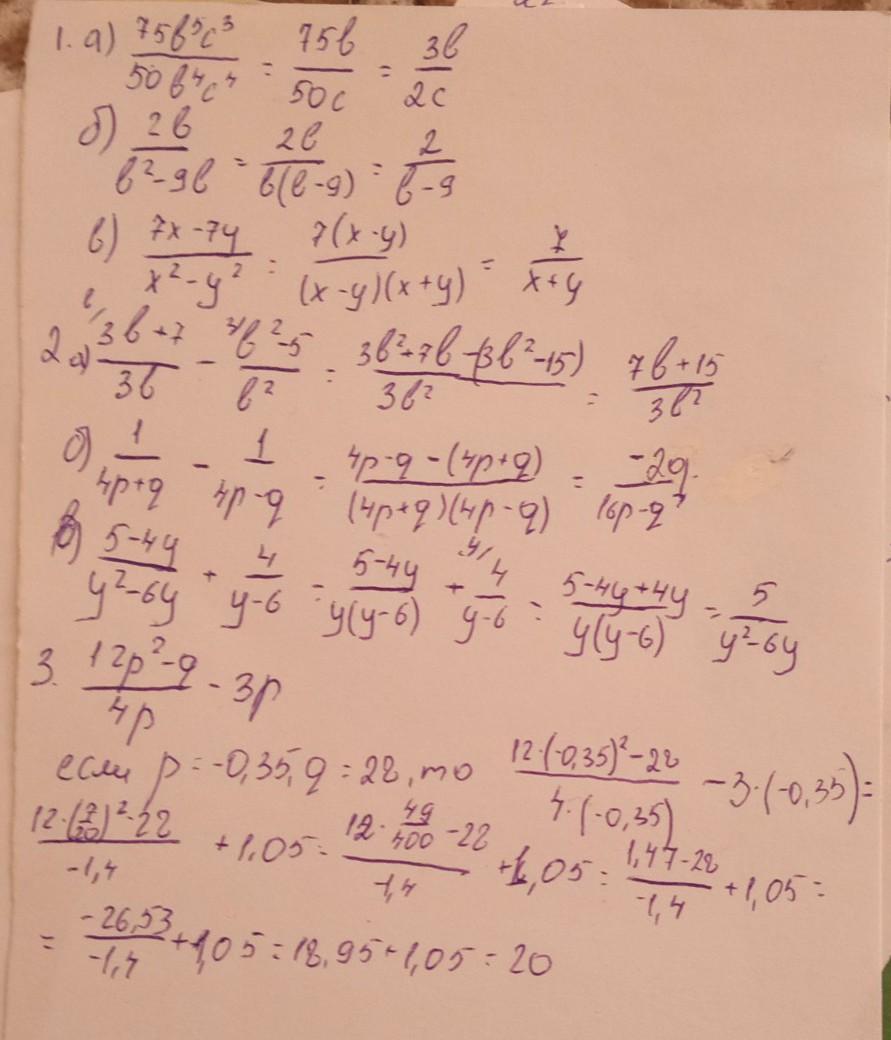 1. а) 75b⁵c³/50b⁴c⁴ = 75b/50c = 3b/2c
б) 2b/b²-9b = 2b/b(b-9) = 2/b-9
в) 7x-7y/x²-y² = 7(x-y)/(x-y)(x+y) = 7/x+y
2 а) 3b+7/3b - b²-5/b² = 3b²+7b-(3b²-15)/3b² = 7b+15/3b²
б) 1/4p+q - 1/4p-q = 4p-q-(4p+q)/(4p+q)(4p-q) = -2q/16p-q²
в) 5-4y/y²-6y + 4/y-6 = 5-4y/y(y-6) + 4/y-6 = 5-4y+4y/y(y-6) = 5/y²-6y
3. 12p²-q/4p - 3p
если p=-0,35, q=28, то 12·(-0,35)²-28/4·(-0,35) -3·(-0,35)=
12·(7/20)²-28/-1,4 +1,05= 12·49/400-28/-1,4 +1,05= 1,47-28/-1,4 +1,05=
= -26,53/-1,4 +1,05=18,95+1,05=20